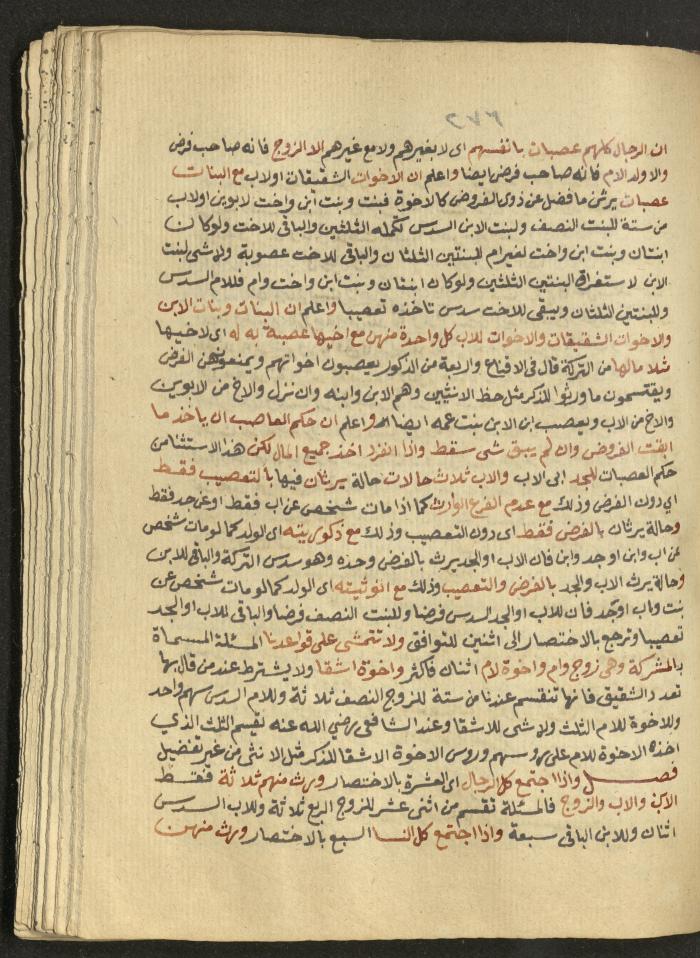 ٢٧٦
ان الرجال كلهم عصبات بانفسهم اى لا بغيرهم ولا مع غيرهم الا الزوج فانه صاحب فرض
والا ولد الام فانه صاحب فرض ايضا واعلم ان الاخوات الشقيقات او لاب مع البنات
عصبات يرثن ما فضل عن ذوى الفروض كالاخوة فبنت وبنت ابن واخت لابوين او لاب
من ستة للبنت النصف ولبنت الابن السدس تكملة الثلثين والباقى للاخت ولو كان
ابنتان وبنت ابن واخت لغير ام للبنتين الثلثان والباقى للاخت عصوبة ولا شى لبنت
الابن لاستغراق البنتين الثلثين ولو كان ابنتان وبنت ابن واخت وام فللام السدس
وللبنتين الثلثان ويبقى للاخت سدس تاخذه تعصيبا واعلم ان البنات وبنات الابن
والاخوات الشقيقات والاخوات للاب كل واحدة منهن مع اخيها عصبة به له اى لاخيها
مثلا مالها من التركة قال فى الاقناع واربعة من الذكور يعصبون اخواتهم ويمنعونهن الفرض
ويقتسمون ما ورثوا للذكر مثل حظ الانثيين وهم الابن وابنه وان نزل والاخ من الابوين
والاخ من الاب ويعصب ابن الابن بنت عمه ايضا اه واعلم ان حكم العاصب ان ياخذ ما
ابقت الفروض وان لم يبق شى سقط واذا انفرد اخذ جميع المال لكن هذا الاستثنا من
حكم العصبات للجد ابى الاب والاب ثلاث حالات حالة يرثان فيها بالتعصيب فقط
اي دون الفرض وذلك مع عدم الفرع الوارث كما اذا مات شخص عن اب فقط او عن جد فقط
وحالة يرثان بالفرض فقط اى دون التعصيب وذلك مع ذكوريته اى الولد كما لو مات شخص
عن اب وابن او جد وابن فان الاب او الجد يرث بالفرض وحده وهو سدس التركة والباقى للابن
وحالة يرث الاب والجد بالفرض والتعصيب وذلك مع انوثيته اى الولد كما لو مات شخص عن
بنت واب او جد فان للاب او الجد السدس فرضا وللبنت النصف فرضا والباقى للاب او الجد
تعصيبا وترجع بالاختصار الى اثنين للتوافق ولا تتمشى على قواعدنا المسئلة المسماة
بالمشركة وهى زوج وام واخوة لام اثنان فاكثر واخوة اشقا ولا يشترط عند من قال بها
تعدد الشقيق فانها تنقسم عندنا من ستة للزوج النصف ثلاثة وللام السدس سهم واحد
وللاخوة للام الثلث ولا شى للاشقا وعند الشافعى رضي الله عنه تقسيم الثلث الذي
اخذه الاخوة للام على روسهم وروس الاخوة الاشقا للذكر مثل الانثى من غير تفضيل
فصل واذا اجتمع كل الرجال اى العشرة بالاختصار ورث منهم ثلاثة فقط
الابن والاب والزوج فالمسئلة تقسم من اثنى عشر للزوج الربع ثلاثة وللاب السدس
اثنان وللابن الباقى سبعة واذا اجتمع كل النسا السبع بالاختصار ورث منهن